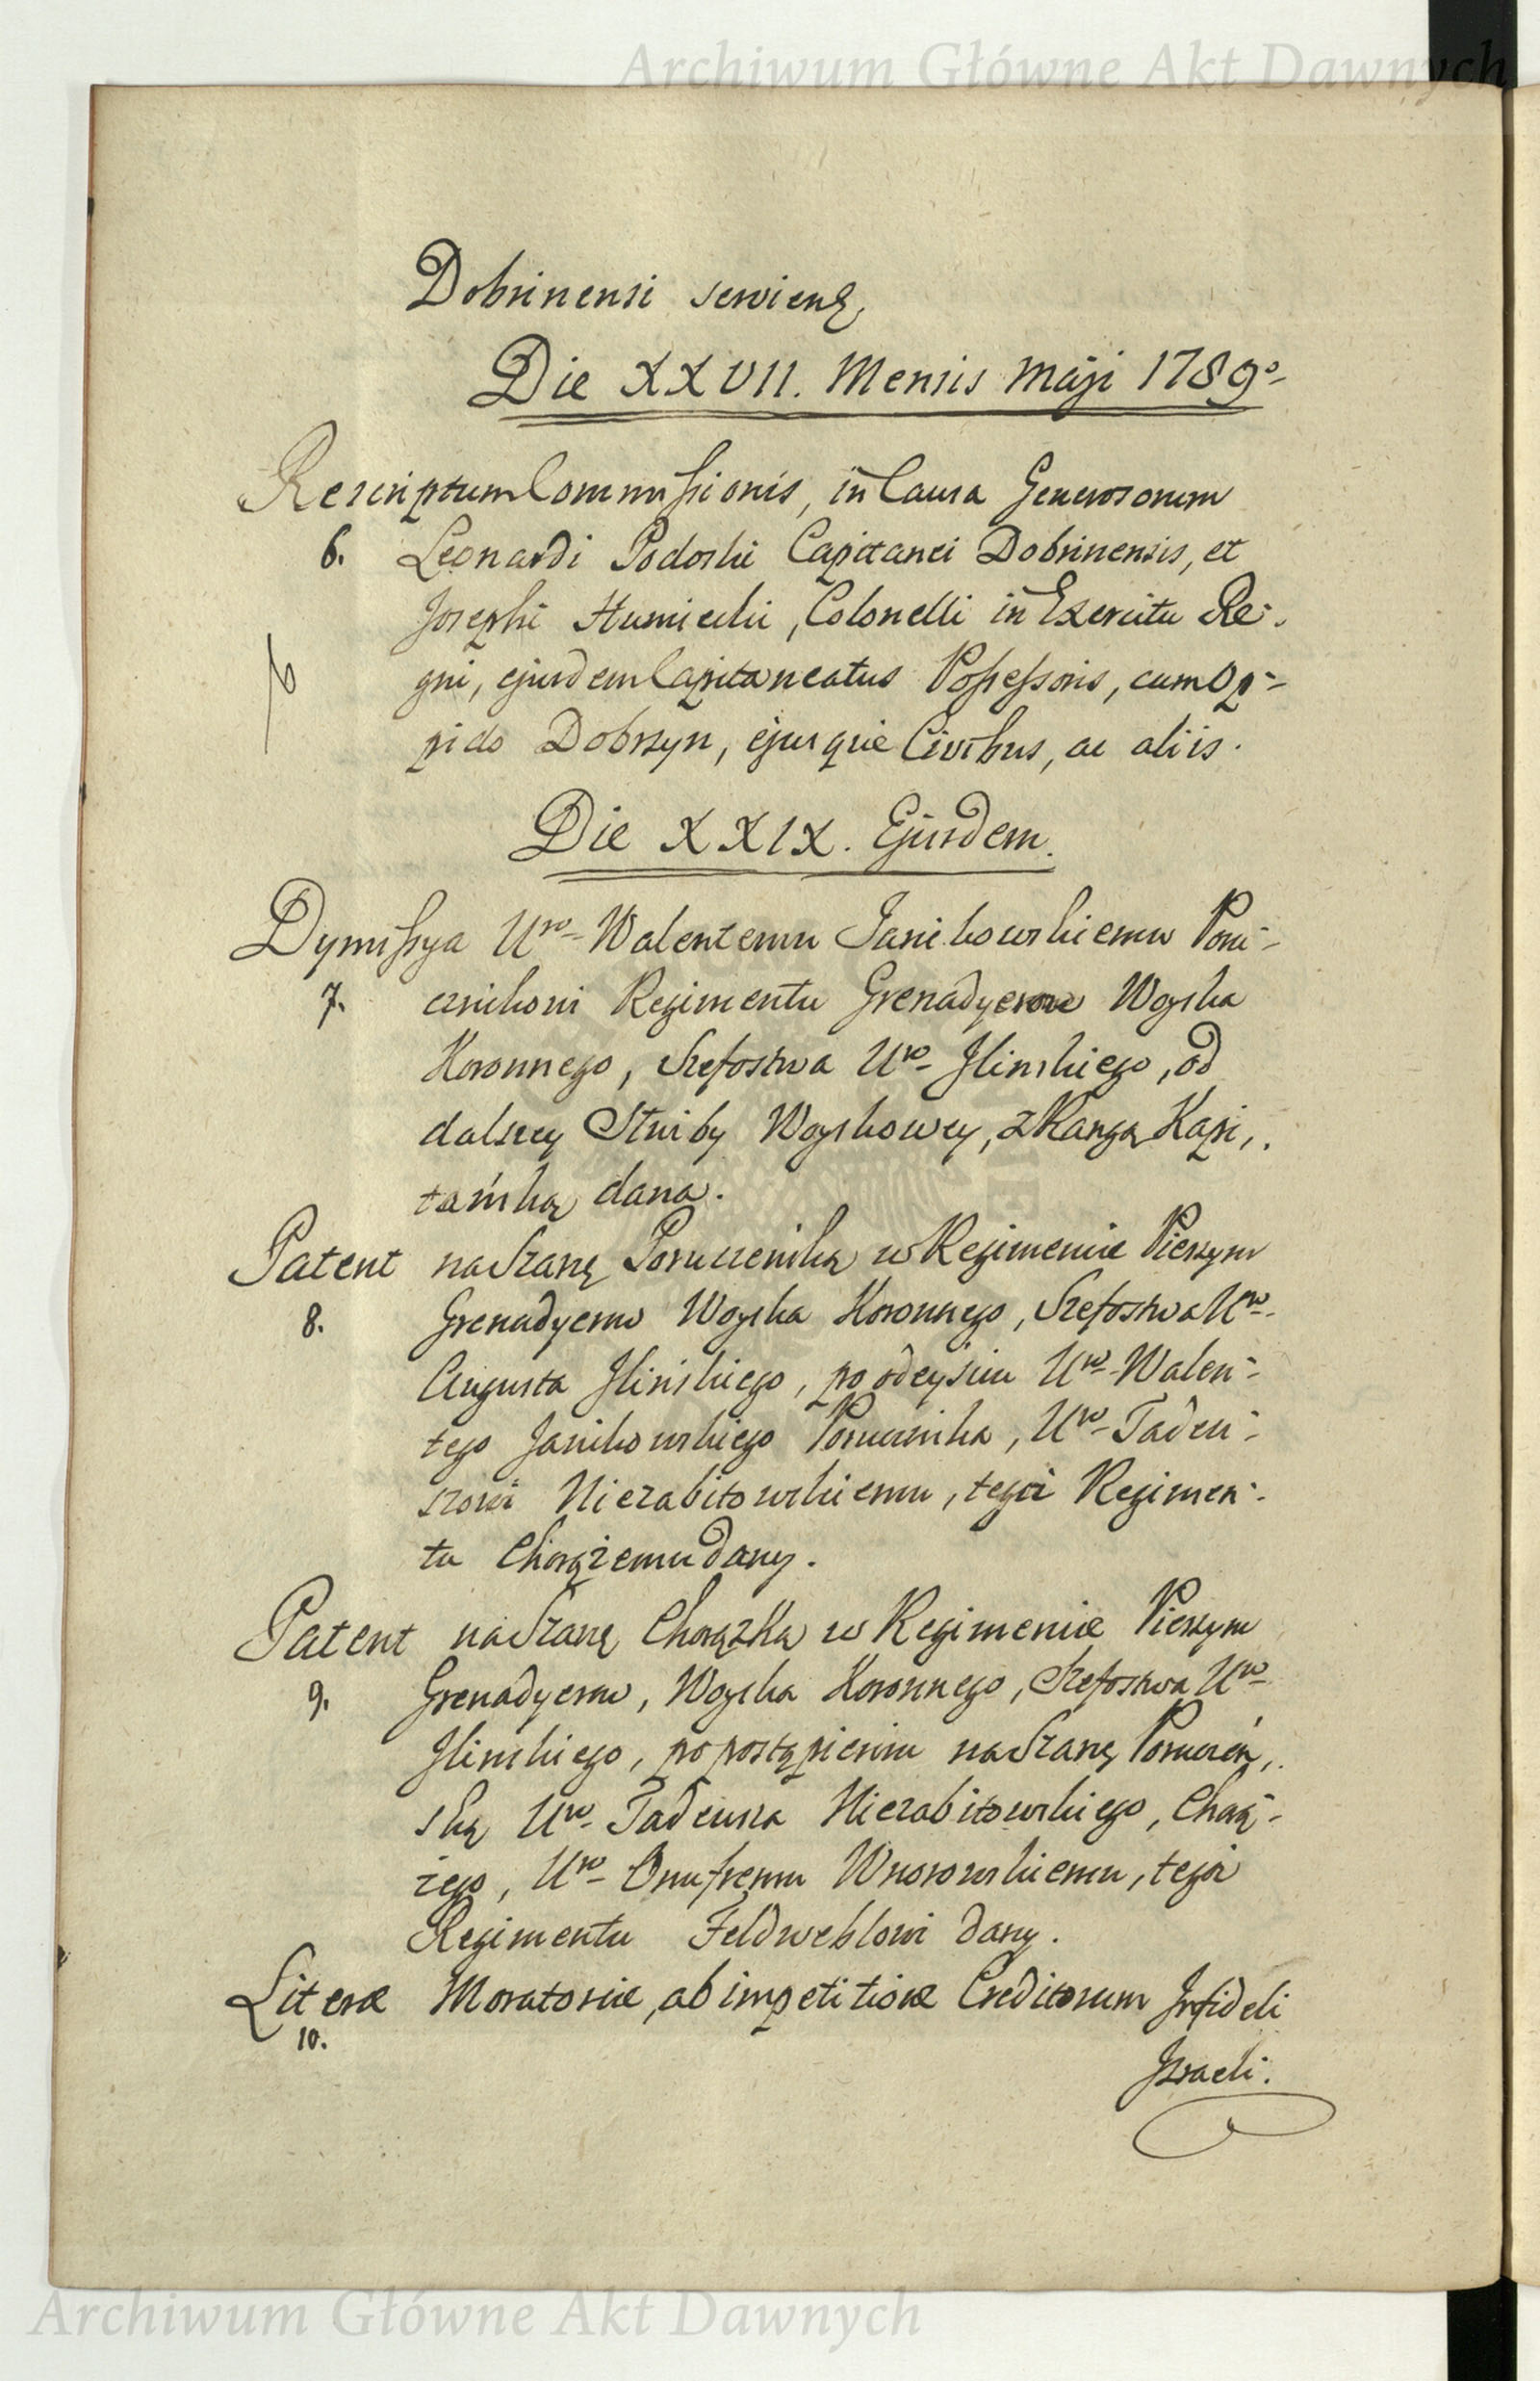 Archiwum Główne Akt Dawnych
Dobrinensi serviens
Die XXVII. Mensis Maji 1789o
Rescriptum Commissionis, in Causa Generosorum
6. Leonardi Podoski Capitanei Dobrinensis, et
Josephi Humiecki, Colonelli in Exercitu Re-
gni, ejusdem Capitaneatus Possessoris, cum Op-
pido Dobrzyn, ejusque Civibus, ac aliis.
Die XXIX. Ejusdem.
Dymissya Uro Walentemu Janikowskiemu Poru-
7. cznikowi Regimentu Grenadyerow Woyska
Koronnego, Szefostwa Uro Jlinskiego, od
dalszey Służby Woyskowey, z Rangą Kapi,,
tańską dana.
Patent na Szarżę Poruczniką w Regimencie Pierszym
8. Grenadyerow Woyska Koronnego, Szefostwa Uro
Augusta Jlińskiego, po odeyściu Uro Walen-
tego Janikowskiego Porucznika, Uro Tadeu-
szowi Niezabitowskiemu, tegoż Regimen-
tu Chorążemu dany.
Patent na Szarżę Chorążką w Regimencie Pierszym
9. Grenadyerow, Woyska Koronnego, Szefostwa Uro
Jlinskiego, po postąpieniu na Szarżę Poruczeń,,
ską Uro Tadeusza Niezabitowskiego, Chorą-
żego, Uro Onufremu Wnorowskiemu, tegoż
Regimentu Feldweblowi dany.
Literæ Moratoriæ, ab impetitione Creditorum Jnfideli
10.
Jzraeli.
Archiwum Główne Akt Dawnych